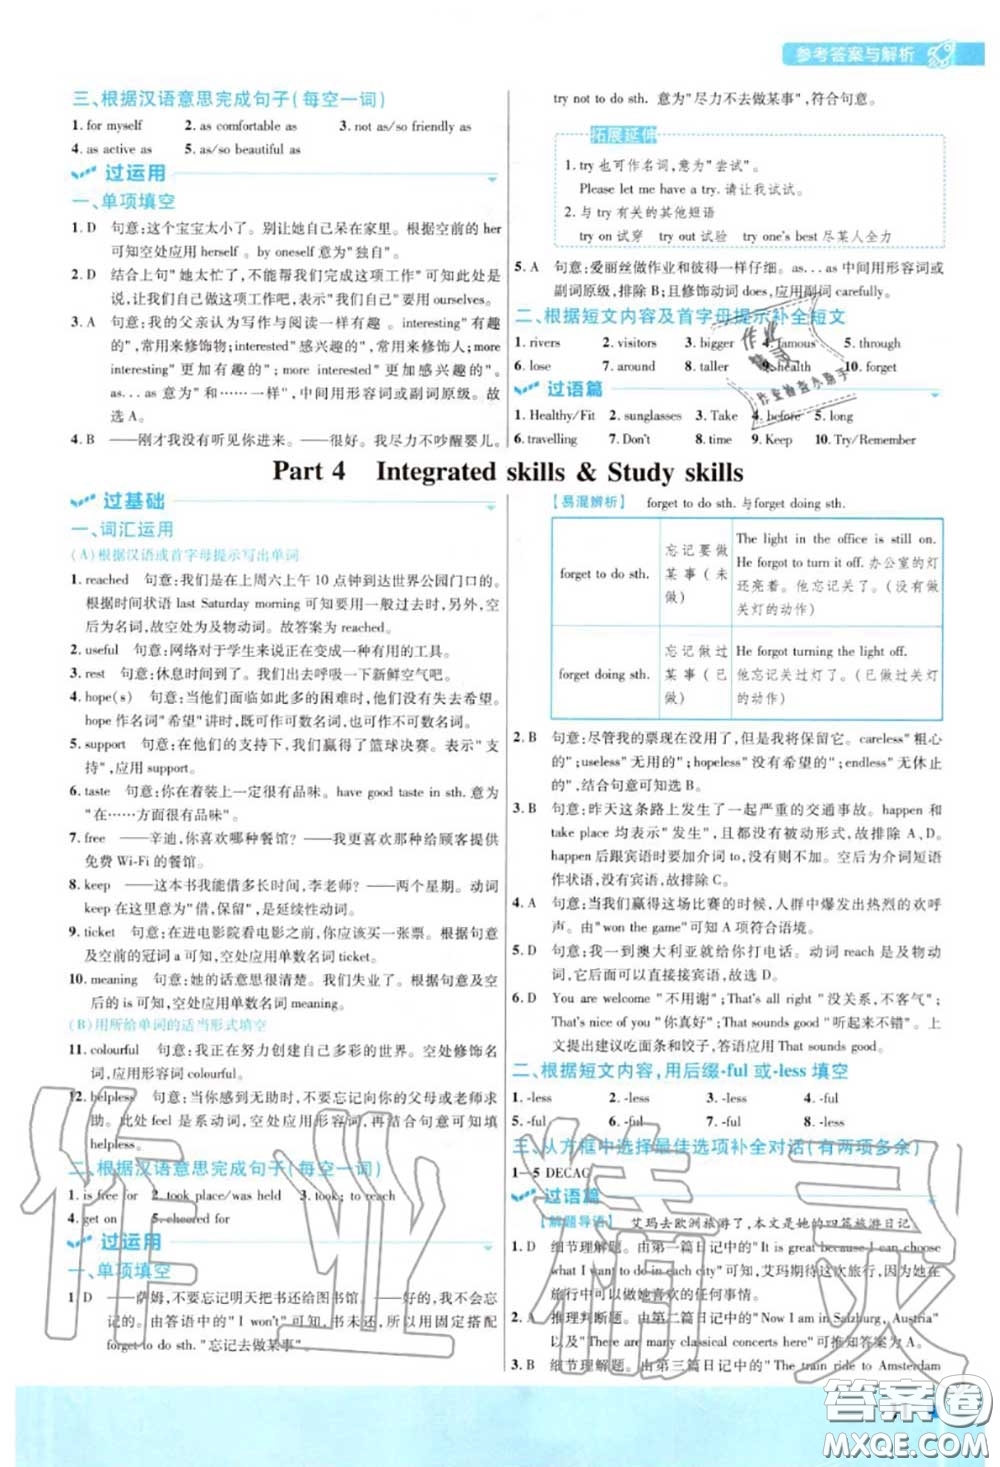 参考答案与解析
三、根据汉语意思完成句子(每空一词)
1. for myself 2. as comfortable as 3. not as/so friendly as
4. as active as 5. as/so beautiful as
过运用
一、单项填空
1. D 句意:这个宝宝太小了。别让她自己呆在家里。根据空前的 her
可知空处应用 herself 。by oneself 意为"独自"。
2. D 结合上句"她太忙了,不能帮我们完成这项工作"可知此处应是
说,让我们自己做这项工作,表示"我们自己"要用 ourselves。
3. A 句意:我的父亲认为写作与阅读一样有趣 。interesting"有趣的
",常用来修饰物;interested"感兴趣的",常用来修饰人;more
interesting"更加有趣的";more interested"更加感兴趣的"。
as… as 意为"和……一样",中间用形容词或副词原级。故
选 A。
4. B ——刚才我没有听见你进来。——很好。我尽力不吵醒婴儿。
try not to do sth. 意为"尽力不去做某事",符合句意。
拓展延伸
1. try 也可作名词,意为"尝试"。
Please let me have a try. 请让我试试。
2. 与 try 有关的其他短语
try on 试穿 try out 试验 try one's best 尽某人全力
5. A 句意:爱丽丝做作业和彼得一样仔细。as… as 中间用形容词或
副词原级,排除 B;且修饰动词 does,应用副词 carefully。
二、根据短文内容及首字母提示补全短文
1. rivers 2. visitors 3. bigger 4. famous 5. through
6. lose 7. around 8. taller 9. health 10. forget
过语篇
1. Healthy/Fit 2. sunglasses 3. Take 4. before 5. long
6. travelling 7. Don't 8. time 9. Keep 10. Try/Remember
Part 4 Integrated skills & Study skills
过基础
一、词汇运用
(A)根据汉语或首字母提示写出单词
1. reached 句意:我们是在上周六上午 10 点钟到达世界公园门口的。
根据时间状语 last Saturday morning 可知要用过去时,另外,空
后为名词,故空处为及物动词。故答案为 reached。
2. useful 句意:网络对于学生来说正在变成一种有用的工具。
3. rest 句意:休息时间到了。我们出去呼吸一下新鲜空气吧。
4. hope(s) 句意:当他们面临如此多的困难时,他们没有失去希望。
hope 作名词"希望"讲时,既可作可数名词,也可作不可数名词。
5. support 句意:在他们的支持下,我们赢得了篮球决赛。表示"支
持",应用 support。
6. taste 句意:你在着装上一定很有品味。have good taste in sth. 意为
"在……方面很有品味"。
7. free ——辛迪,你喜欢哪种餐馆? ——我更喜欢给顾客提供
免费 Wi-Fi 的餐馆。
8. keep ——这本书我能借多长时间,李老师? ——两个星期。动词
keep 在这里意为"借,保留",是延续性动词。
9. ticket 句意:在进电影院看电影之前,你应该买一张票。根据句意
及空前的冠词 a 可知,空处应用单数名词 ticket。
10. meaning 句意:她的话意思很清楚。我们失业了。根据句意及空
后的 is 可知,空处应用单数名词 meaning。
(B)用所给单词的适当形式填空
11. colourful 句意:我正在努力创建自己多彩的世界。空处修饰名
词,应用形容词 colourful。
12. helpless 句意:当你感到无助时,不要忘记向你的父母或老师求
助。此处 feel 是系动词,空处应用形容词,再根据句意可知填
helpless。
二、根据汉语意思完成句子(每空一词)
1. is free for 2. took place/was held 3. took; to reach
4. get on 5. cheered for
过运用
一、单项填空
1. D ——萨姆,不要忘记明天把书还给图书馆。——好的,我不会忘
的。由答语中的"I won't"可知,书未还,所以用固定搭配
forget to do sth. "忘记去做某事"。
【易混辨析】 forget to do sth. 与 forget doing sth.
forget to do sth. 忘记要做某事(未做) The light in the office is still on. He forgot to turn it off. 办公室的灯还亮着。他忘记关了。(没有做关灯的动作)
forget doing sth. 忘记做过某事(已做) He forgot turning the light off. 他忘记关过灯了。(已做过关灯的动作)
2. B 句意:尽管我的票现在没用了,但我将保留它。careless"粗心
的";useless"无用的";hopeless"没有希望的";endless"无止境
的",结合句意可知选 B。
3. B 句意:昨天这条路上发生了一起严重的交通事故。happen 和
take place 均表示"发生",且都没有被动形式,故排除 A、D。
happen 后跟宾语时要加介词 to,不符合语境。空后为介词短语
作状语,故排除 C。
4. A 句意:当我们赢得这场比赛的时候,人群中爆发出热烈的欢呼
声。由"won the game"可知 A 项符合语境。
5. D 句意:我一到澳大利亚就给你打电话。动词 reach 是及物动
词,后直接接宾语,故选 D。
6. D You are welcome "不用谢";That's all right "没关系,不客气";
That's nice of you "你真好";That sounds good "听起来不错"。上
文提出建议吃面条和饺子,答语应用 That sounds good。
二、根据短文内容,用后缀-ful 或-less 填空
1. -less 2. -less 3. -less 4. -ful
5. -less 6. -ful 7. -ful 8. -less
三、从方框中选择最佳选项补全对话(有两项多余)
1—5 DECAG
过语篇
【解题导语】 艾玛去欧洲旅游了,本文是她的四篇旅游日记。
1. D 细节理解题。由第一篇日记中的"It is great because I can do
what I want to do in each city"可知,艾玛期待这次旅行,因为她在
旅行中可以做她喜欢的任何事情。
2. A 推理判断题。由第二篇日记中的"Now I am in Salzburg, Austria"
以及"There are many classical concerts here"可推知答案为 A。
3. B 细节理解题。由第三篇日记中的"The train ride to Amsterdam
作业精灵
作业精灵
作业检查小助手
答案圈
MXQE.COM